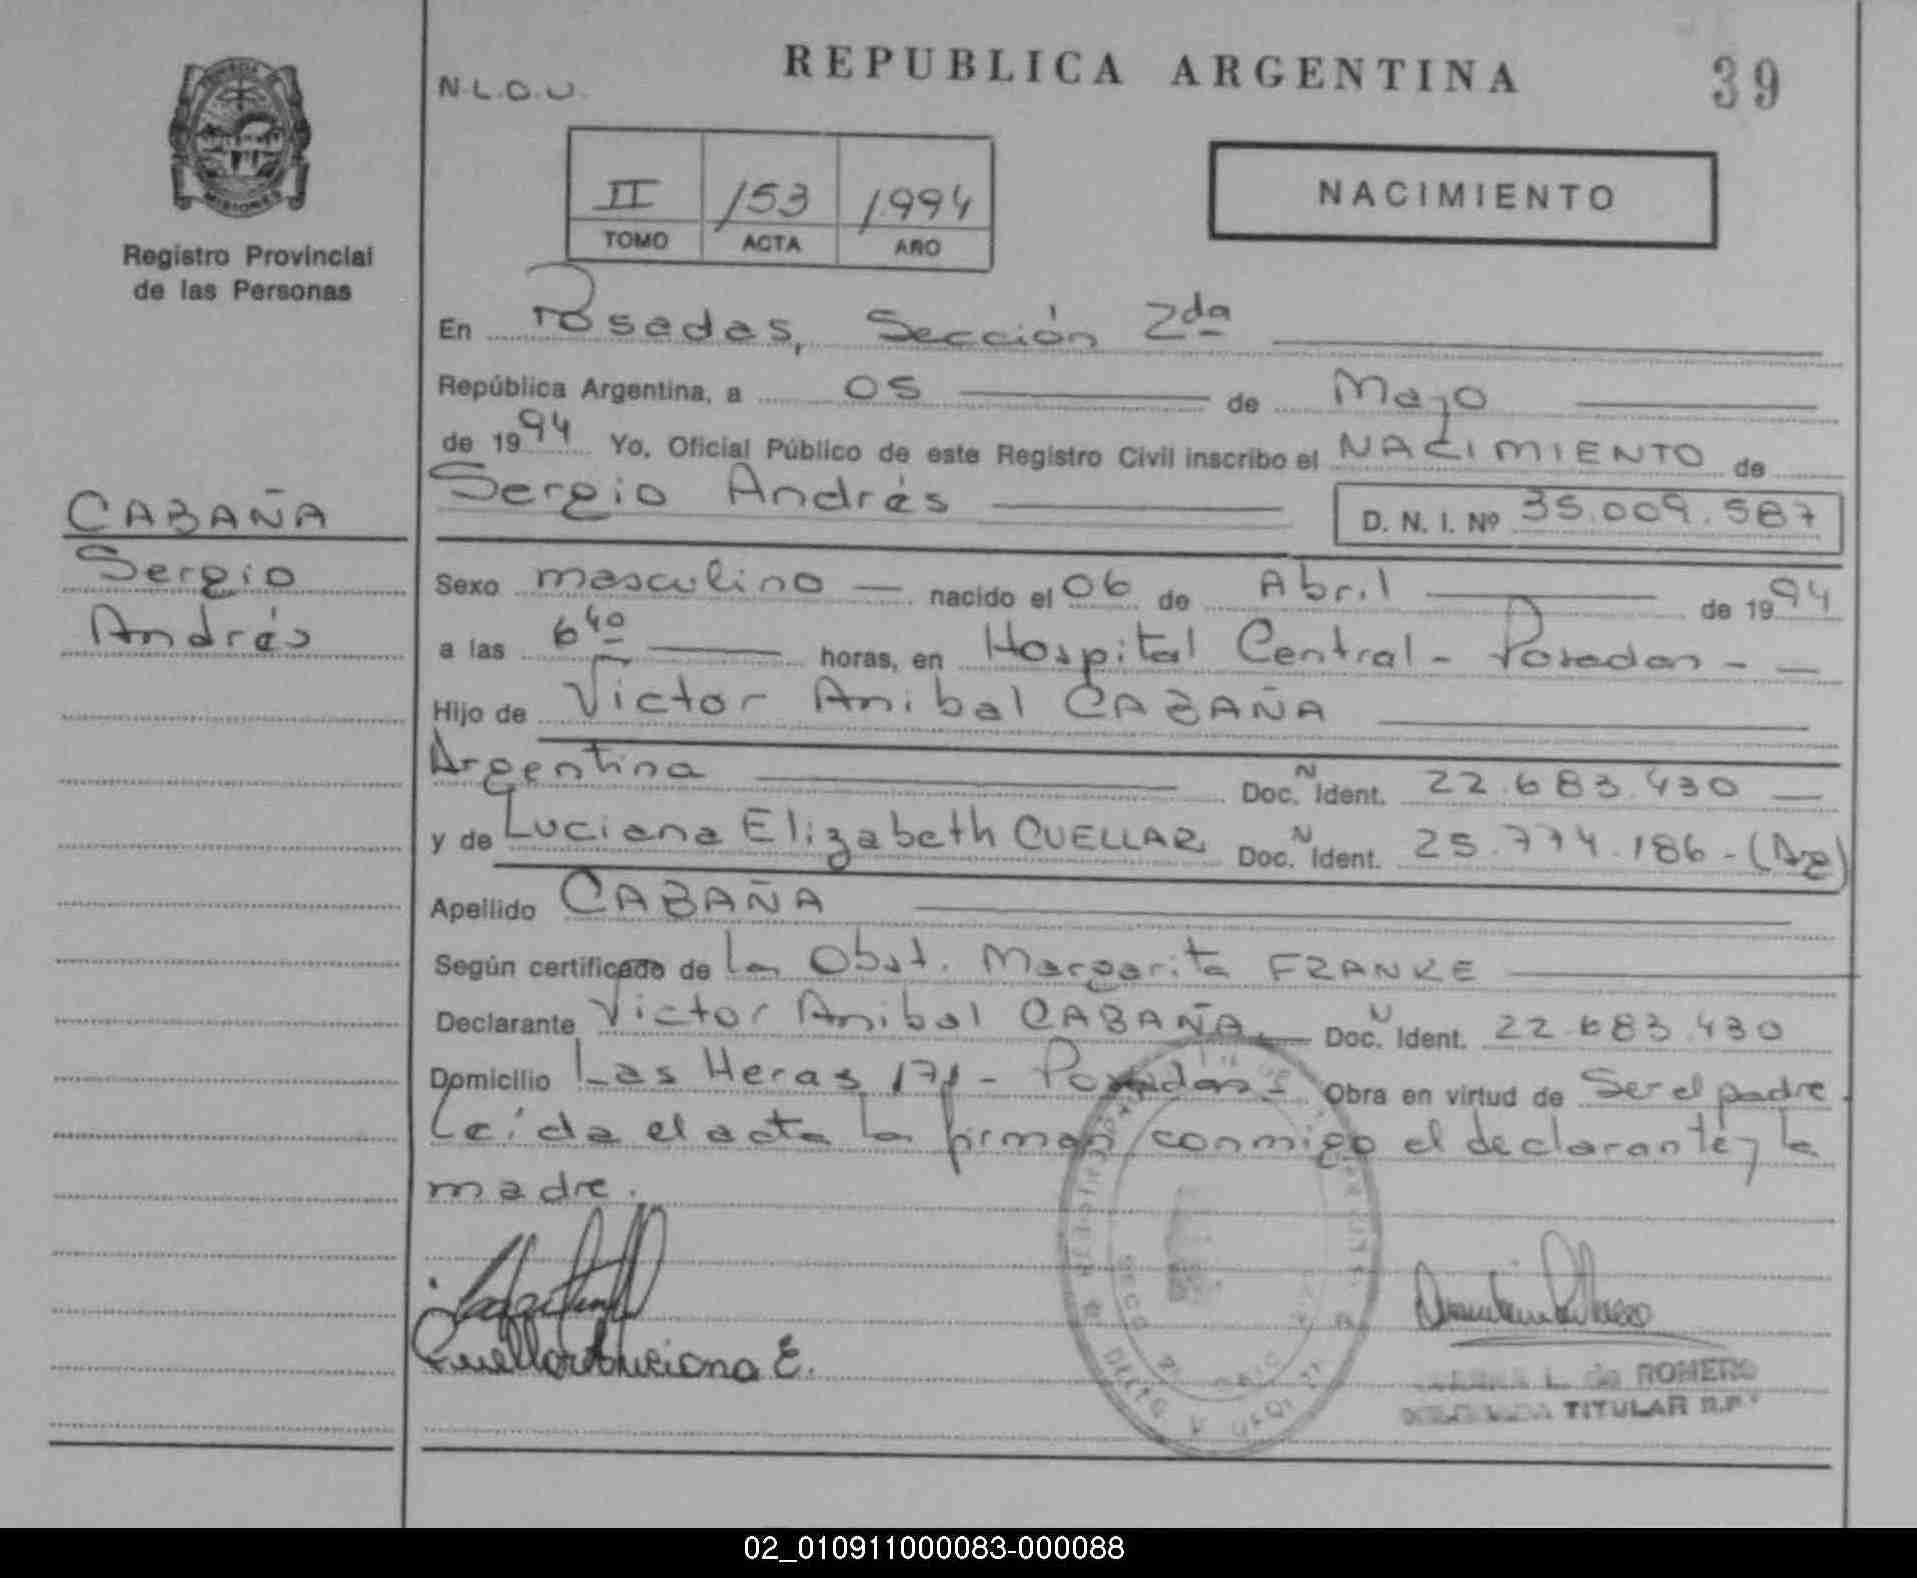 REPUBLICA ARGENTINA
39
N.L.O.U.
NACIMIENTO
II 153 1994
TOMO ACTA AÑO
MISIONES
Registro Provincial
de las Personas
CABAÑA
Sergio
Andrés
En Posadas, Sección 2da
República Argentina, a 05 de Mayo
de 1994 Yo, Oficial Público de este Registro Civil inscribo el NACIMIENTO de
Sergio Andrés D. N. I. Nº 35.009.587
Sexo masculino nacido el 06 de Abril de 1994
a las 6 40 horas, en Hospital Central - Posadas -
Hijo de Victor Anibal CABAÑA
Argentina Doc. N Ident. 22.683.430
y de Luciana Elizabeth CUELLAR Doc. N Ident. 25.774.186 - (Arg)
Apellido CABAÑA
Según certificado de la Obst. Margarita FRANKE
Declarante Victor Anibal CABAÑA Doc. N Ident. 22.683.430
Domicilio Las Heras 171 - Posadas - Obra en virtud de Ser el padre.
Leída el acta la firman conmigo el declarante y la
madre.
Cuellar Luciana E.
L. de ROMERO
TITULAR R.P.
02_010911000083-000088